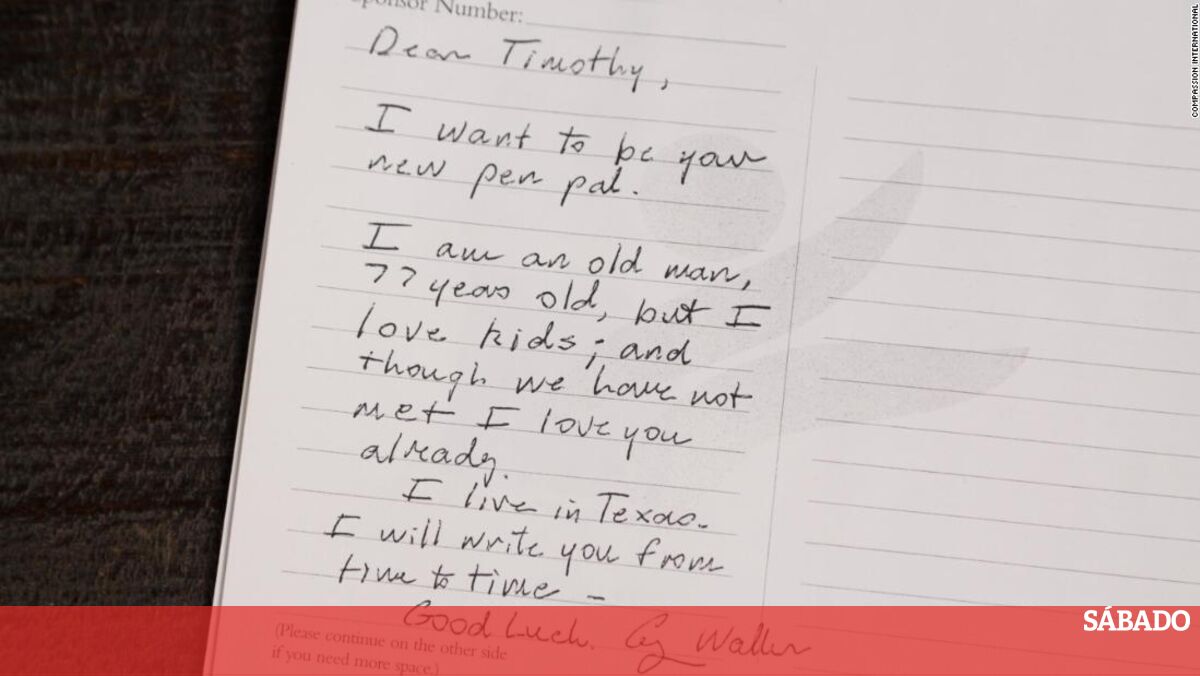 Sponsor Number:
Dear Timothy,
I want to be your
new pen pal.
I am an old man,
77 years old, but I
love kids; and
though we have not
met I love you
already.
I live in Texas-
I will write you from
time to time -
Good Luck. G. Walker
(Please continue on the other side
if you need more space.)
SÁBADO
COMPASSION INTERNATIONAL